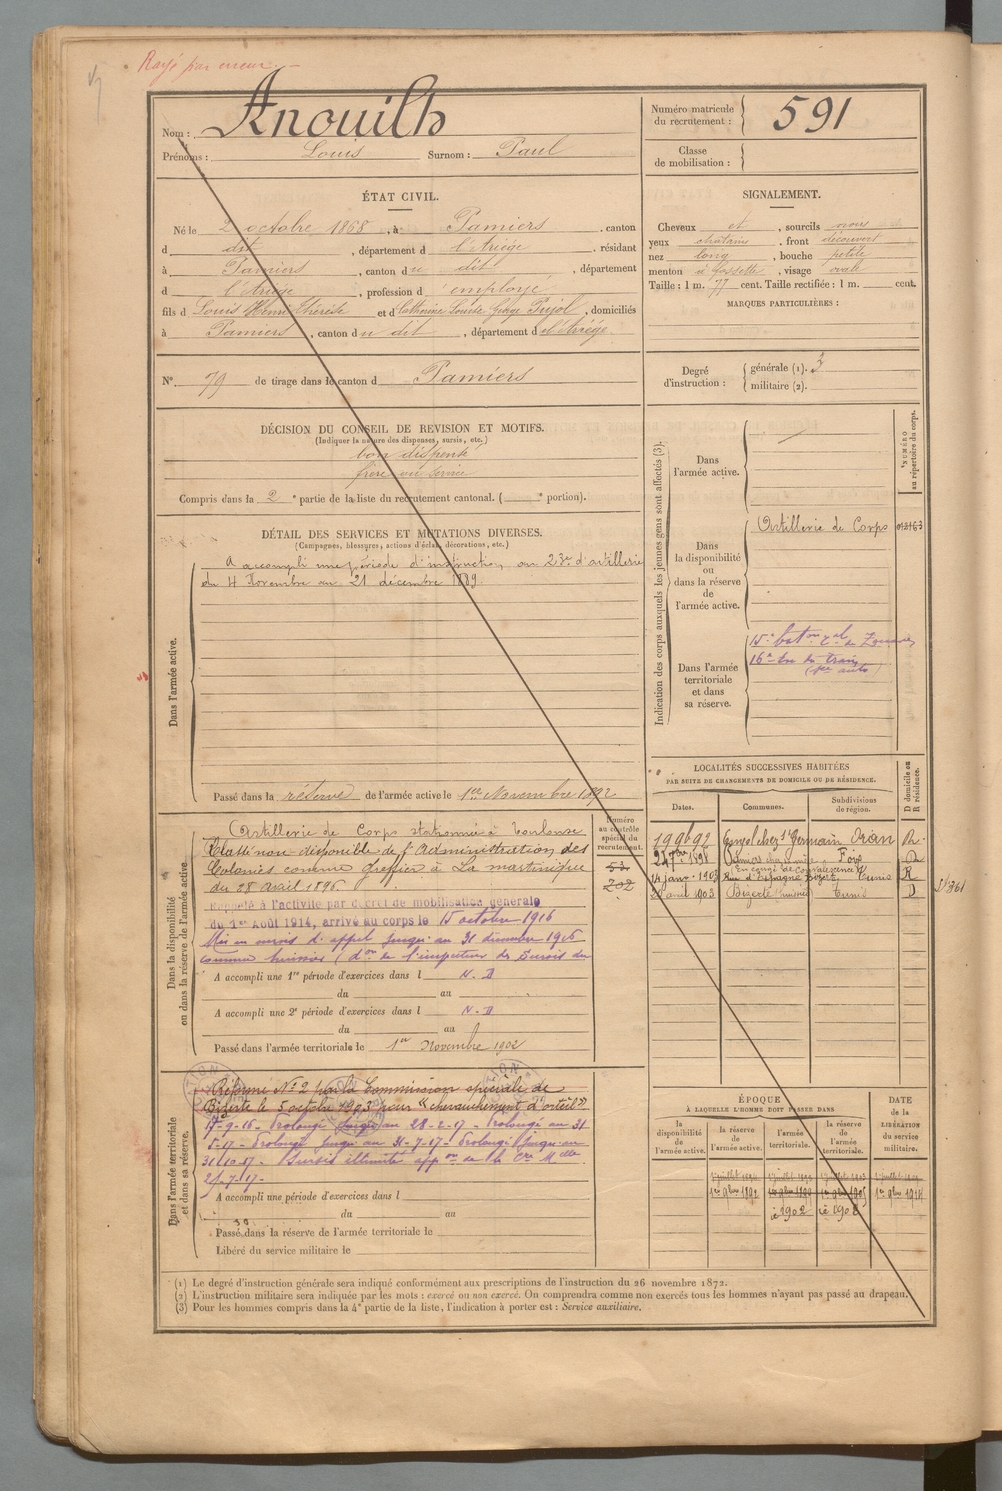 Rayé par erreur. -
Nom : Anouilh
Prénoms : Louis Surnom : Paul
Numéro matricule du recrutement : 591
Classe de mobilisation :
ÉTAT CIVIL.
Né le 2 octobre 1868, à Pamiers, canton
d dit, département d l'Ariège, résidant
à Pamiers, canton du dit, département
d l'Ariège, profession d employé
fils d Louis Henri Thérèse et d Catherine Louise Pujol, domiciliés
à Pamiers, canton du dit, département d l'Ariège
N° 79 de tirage dans le canton d Pamiers
DÉCISION DU CONSEIL DE REVISION ET MOTIFS.
(Indiquer la nature des dispenses, sursis, etc.)
bon dispensé
frère au service
Compris dans la 2e partie de la liste du recrutement cantonal. ( e portion).
DÉTAIL DES SERVICES ET MUTATIONS DIVERSES.
(Campagnes, blessures, actions d'éclat, décorations, etc.)
Dans l'armée active.
A accompli une période d'instruction au 23e d'artillerie
du 4 Novembre au 21 décembre 1889.
Passé dans la réserve de l'armée active le 1er Novembre 1892
Dans la disponibilité ou dans la réserve de l'armée active.
Artillerie de Corps stationnée à Toulouse
Classé non-disponible de l'Administration des
Colonies comme greffier à La martinique
du 28 avril 1896
Rappelé à l'activité par décret de mobilisation générale
du 1er Août 1914, arrivé au corps le 15 octobre 1916
Mis en sursis d'appel jusqu'au 31 décembre 1916
comme huissier (don de l'inspecteur des Sursis du
A accompli une 1re période d'exercices dans l N. D
du au
A accompli une 2e période d'exercices dans l N. D
du au
Passé dans l'armée territoriale le 1er Novembre 1902
Numéro au contrôle spécial du recrutement.
202
Dans l'armée territoriale et dans sa réserve.
Réformé N° 2 par la Commission spéciale de
Bizerte le 5 octobre 1903 pour "chevauchement d'orteil".
17-9-16 - Prolongé jusqu'au 28-2-17 - Prolongé au 31
5-17 - Prolongé jusqu'au 31-7-17 - Prolongé jusqu'au
31-10-17 - Sursis illimité
A accompli une période d'exercices dans l
du au
Passé dans la réserve de l'armée territoriale le
Libéré du service militaire le
SIGNALEMENT.
Cheveux et, sourcils noirs
yeux chatains, front découvert
nez long, bouche petite
menton à fossette, visage ovale
Taille : 1 m. 77 cent. Taille rectifiée : 1 m. cent.
MARQUES PARTICULIÈRES :
Degré d'instruction : générale (1). 3
militaire (2).
Indication des corps auxquels les jeunes gens sont affectés (3).
NUMÉRO au répertoire du corps.
Dans l'armée active.
Dans la disponibilité ou dans la réserve de l'armée active.
Artillerie de Corps
Dans l'armée territoriale et dans sa réserve.
15e baton tal de Zouaves
16e de train
LOCALITÉS SUCCESSIVES HABITÉES
PAR SUITE DE CHANGEMENTS DE DOMICILE OU DE RÉSIDENCE.
Dates. Communes. Subdivisions de région. D domicile ou R résidence.
chez St Germain Oran R.
Pamiers Foix
En congé de convalescence
14 janv. 1903 Rue d'Espagne Bizerte Tunis R
avril 1903 Bizerte Tunis D
ÉPOQUE
À LAQUELLE L'HOMME DOIT PASSER DANS
la disponibilité de l'armée active. la réserve de l'armée active. l'armée territoriale. la réserve de l'armée territoriale.
DATE de la LIBÉRATION du service militaire.
1er 9bre 1892
1902
1908
(1) Le degré d'instruction générale sera indiqué conformément aux prescriptions de l'instruction du 26 novembre 1872.
(2) L'instruction militaire sera indiquée par les mots : exercé ou non exercé. On comprendra comme non exercés tous les hommes n'ayant pas passé au drapeau.
(3) Pour les hommes compris dans la 4e partie de la liste, l'indication à porter est : Service auxiliaire.